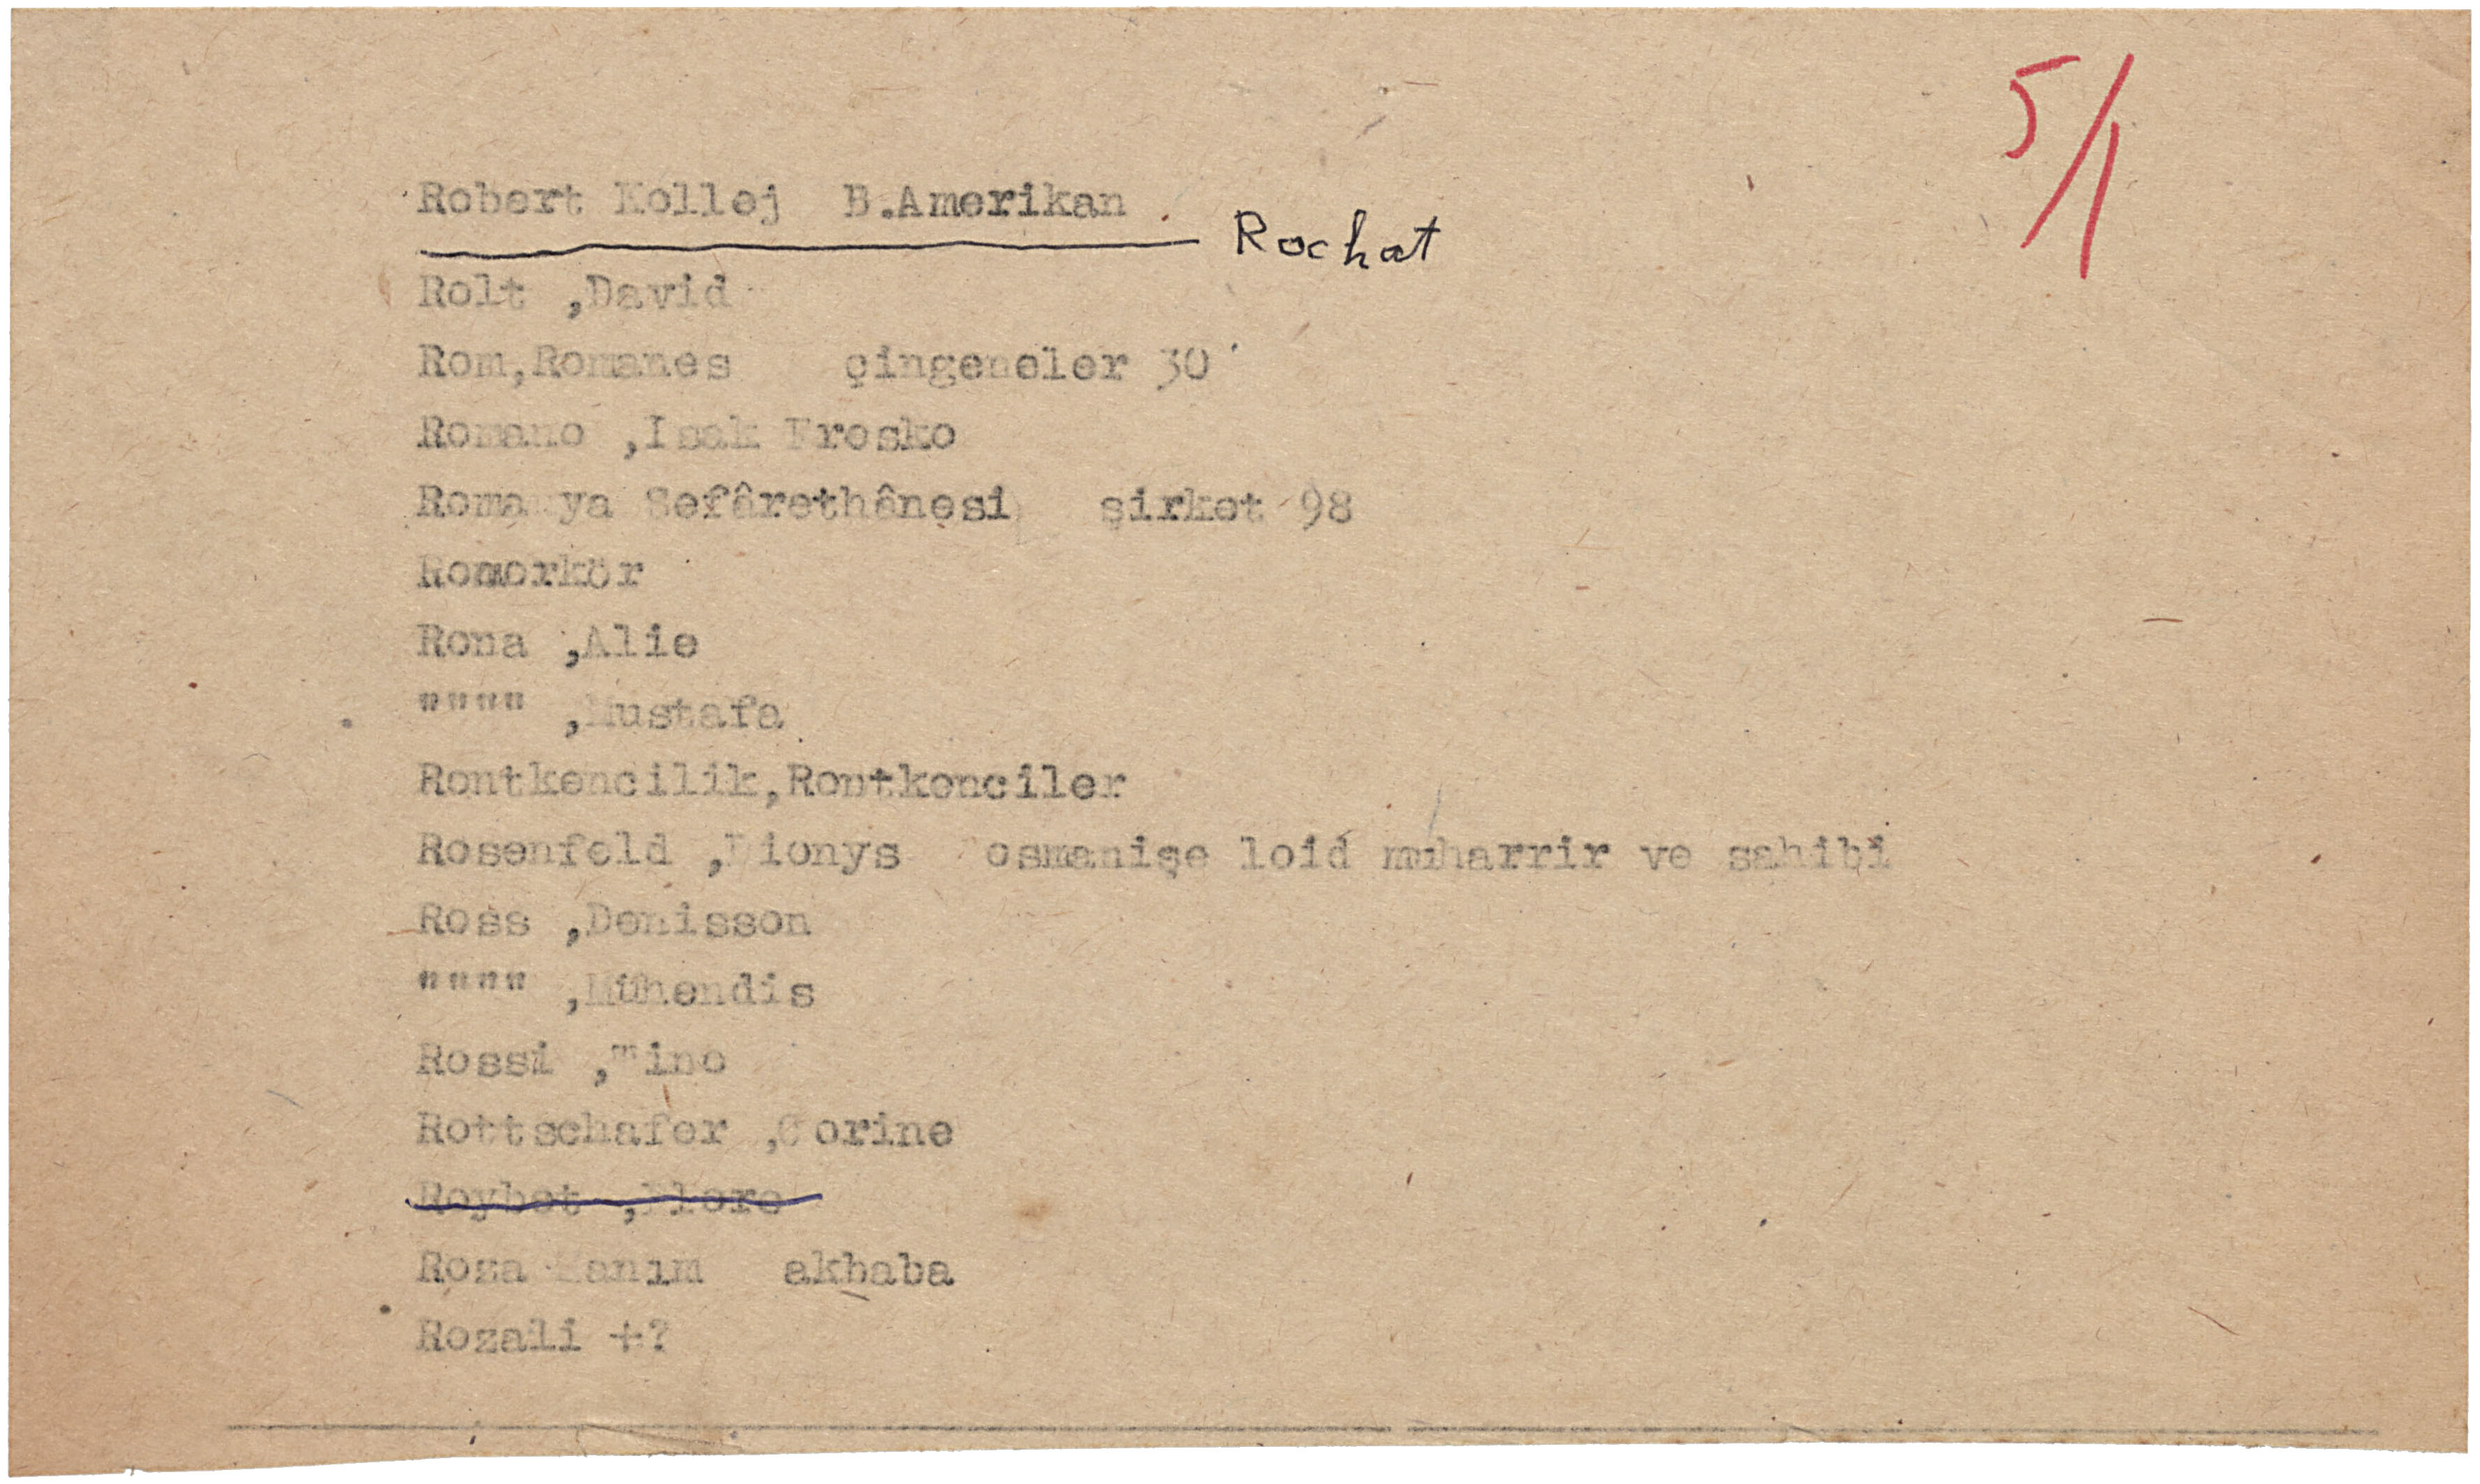 5/1
Robert Kollej B.Amerikan
Rochat
Rolt ,David
Rom,Romanes çingeneler 30
Romano ,Isak Fresko
Romanya Sefârethânesi şirket 98
Romorkör
Rona ,Alie
"""" ,Mustafa
Rontkencilik,Rontkenciler
Rosenfeld ,Dionys osmanişe loid muharrir ve sahibi
Ross ,Denisson
"""" ,Mühendis
Rossi ,Tino
Rottschafer ,Corine
Roybet ,Flore
Roza Hanım akbaba
Rozali +?